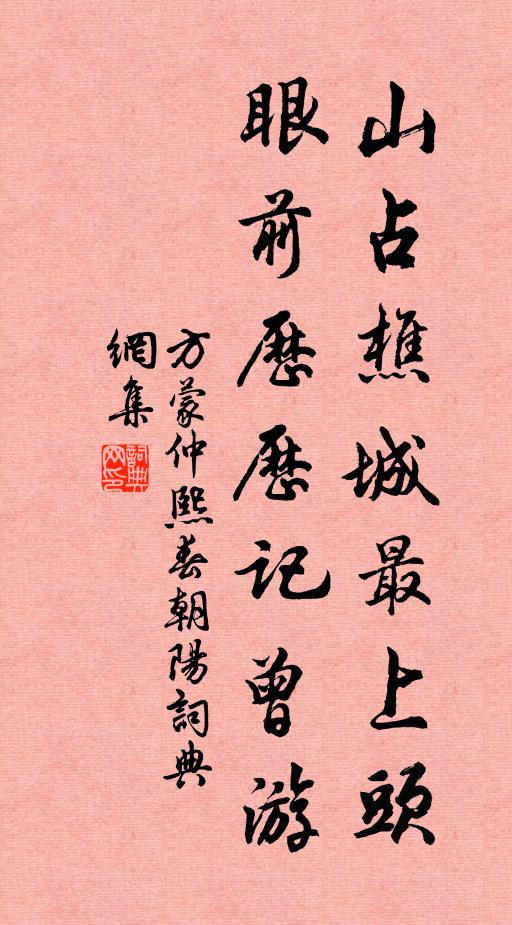 山占樵城最上頭
眼前歷歷記曾游
方蒙仲熙春朝陽詞典
網集
詞典
网印